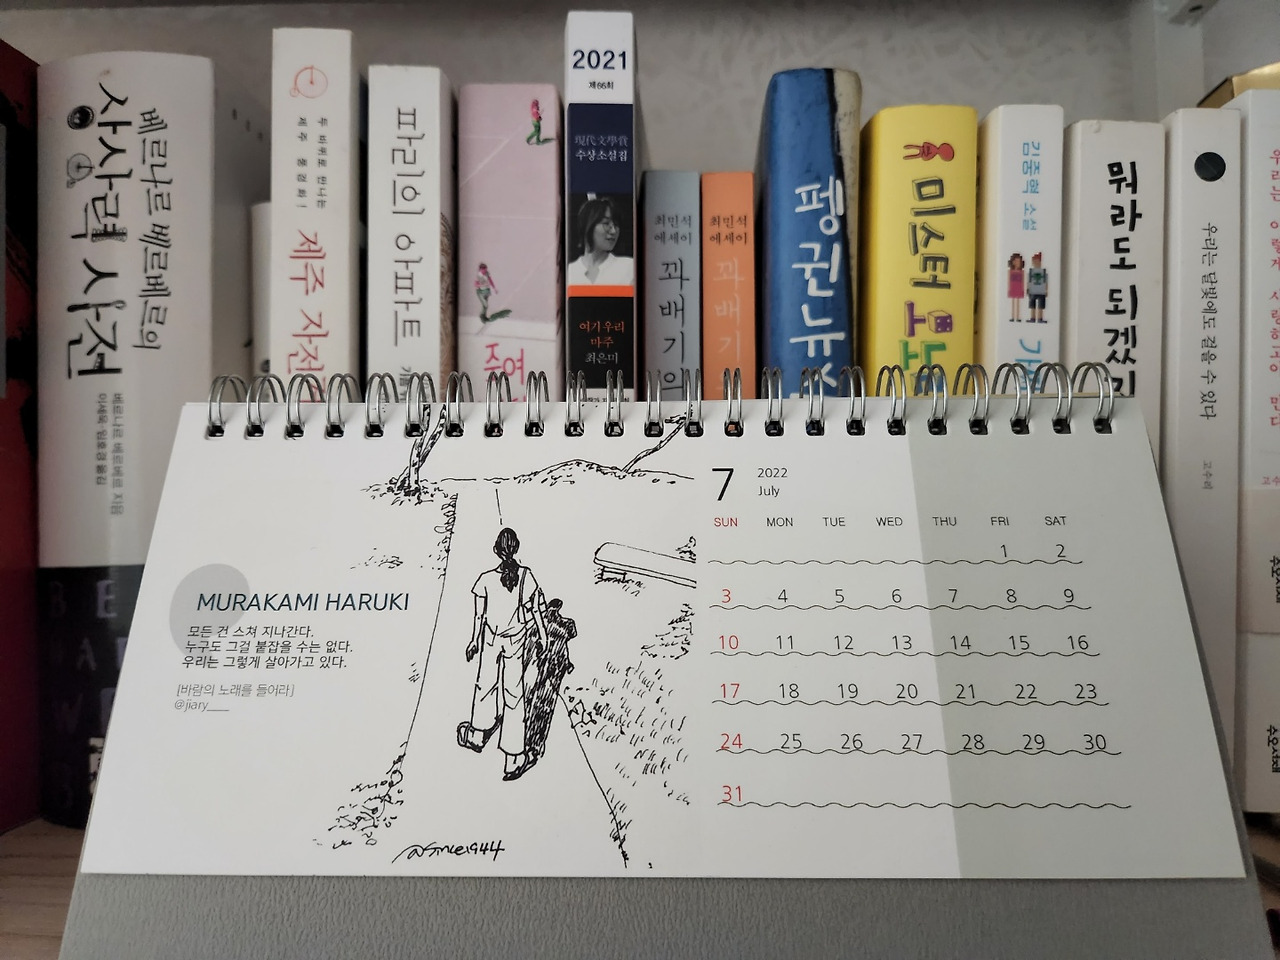 베르나르 베르베르의
상상력 사전
베르나르 베르베르 지음
이세욱 임호경 옮김
두 바퀴로 만나는
제주 풍경화
제주 자전
파리의 아파트
2021
제66회
現代文學賞
수상소설집
여기 우리
마주
최은미
최민석
에세이
꽈배기의
최민석
에세이
꽈배기
펭귄뉴
미스터
모노
김중혁 소설
뭐라도 되겠지
우리는 달빛에도 걸을 수 있다
고수리
MURAKAMI HARUKI
모든 건 스쳐 지나간다.
누구도 그걸 붙잡을 수는 없다.
우리는 그렇게 살아가고 있다.
[바람의 노래를 들어라]
@jiary___
@since1944
7
2022
July
SUN MON TUE WED THU FRI SAT
1 2
3 4 5 6 7 8 9
10 11 12 13 14 15 16
17 18 19 20 21 22 23
24 25 26 27 28 29 30
31